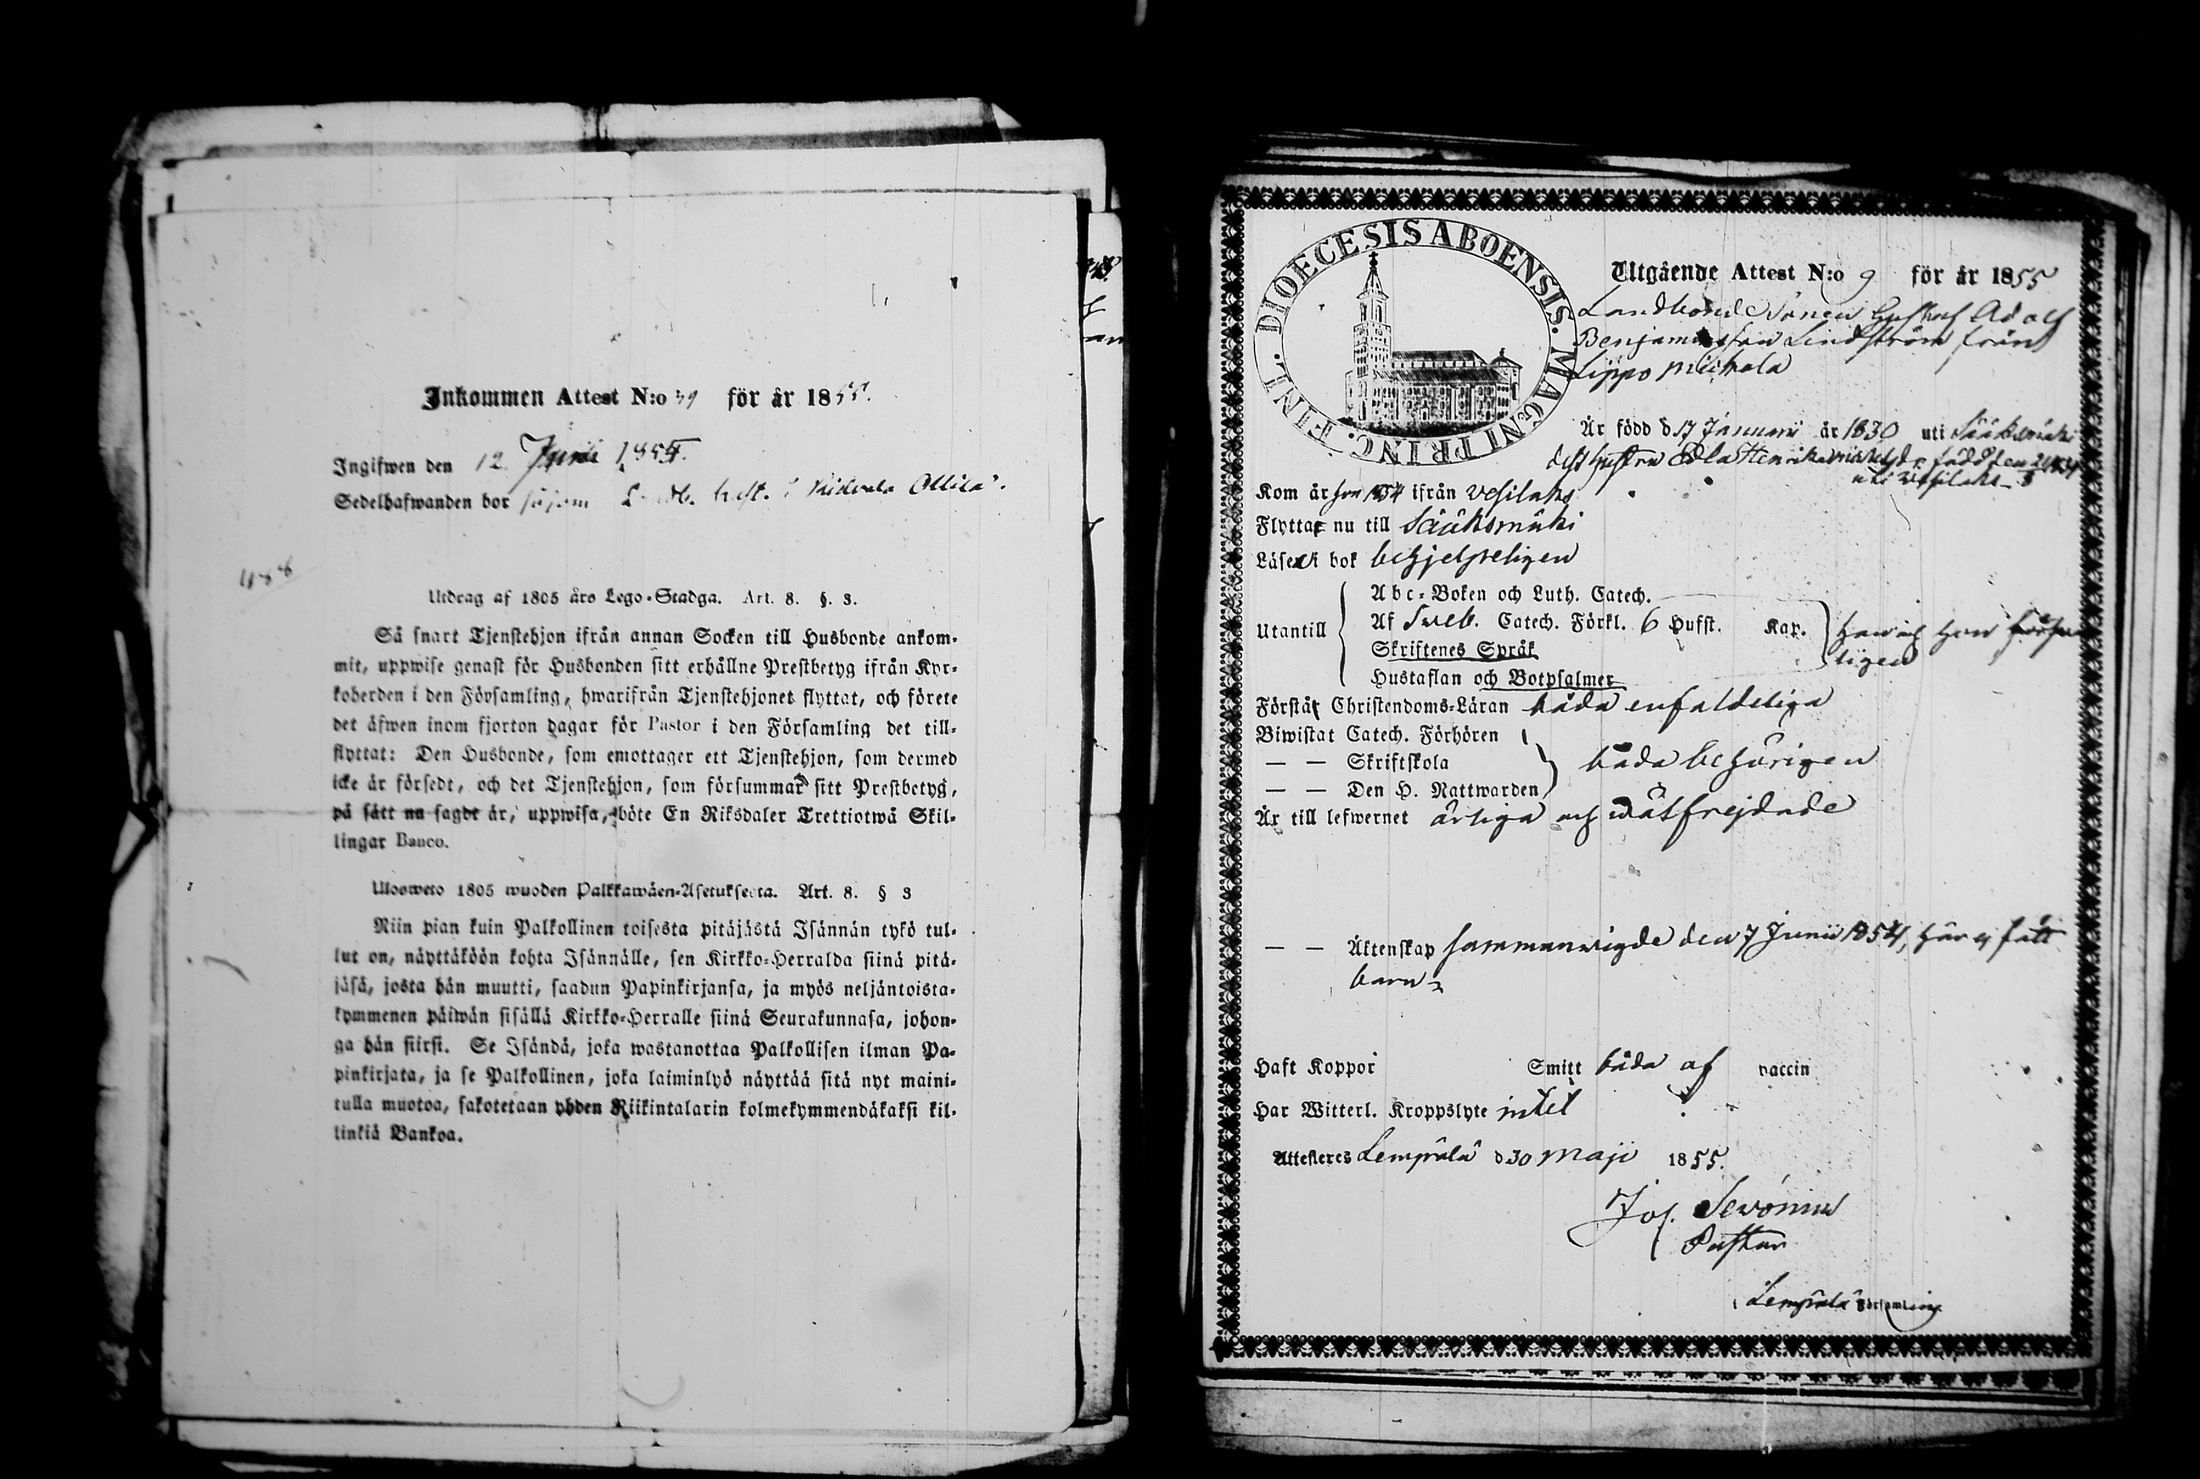 Inkommen Attest N:o 39 för år 1855.
Ingifwen den 12 Junii 1855.
Sedelhafwanden bor såsom Ollila.
488
Utdrag af 1805 års Lego-Stadga. Art. 8. §. 3.
Så snart Tjenstehjon ifrån annan Socken till Husbonde ankom-
mit, uppwise genast för Husbonden sitt erhållne Prestbetyg ifrån Kyr-
koherden i den Församling, hwarifrån Tjenstehjonet flyttat, och förete
det äfwen inom fjorton dagar för Pastor i den Församling det till-
flyttat: Den Husbonde, som emottager ett Tjenstehjon, som dermed
icke är försedt, och det Tjenstehjon, som försummar sitt Prestbetyg,
på sätt nu sagdt är, uppwisa, böte En Riksdaler Trettiotwå Skil-
lingar Banco.
Ulosweto 1805 wuoden Palkkawäen-Asetuksesta. Art. 8. § 3
Niin pian kuin Palkollinen toisesta pitäjästä Isännän tykö tul-
lut on, näyttäköön kohta Isännälle, sen Kirkko-Herralda siinä pitä-
jäsä, josta hän muutti, saadun Papinkirjansa, ja myös neljäntoista-
kymmenen päiwän sisällä Kirkko-Herralle siinä Seurakunnasa, johon-
ga hän siirsi. Se Isändä, joka wastanottaa Palkollisen ilman Pa-
pinkirjata, ja se Palkollinen, joka laiminlyö näyttää sitä nyt maini-
tulla muotoa, sakotetaan yhden Riikintalarin kolmekymmendäkaksi kil-
linkiä Bankoa.
DIOECESIS ABOENSIS. MAGNI PRINC. FINL.
Utgående Attest N:o 9 för år 1855
Landbonde Sonen Gustaf Adolf
Benjaminsson Lindström från
Lippo Mickola
Är född d 17 Januarii år 1830 uti Sääksmäki
dess hustru Edla Henrika född den
uti Wesilaks
Kom år hon 1854 ifrån Vesilaks
Flyttar nu till Sääksmäki
Läser i bok behjelpeligen
Utantill
Abc-Boken och Luth. Catech.
Af Sveb. Catech. Förkl. 6 Hufst. Kap.
Skriftenes Språk
Hustaflan och Botpsalmer
han och hon förswar
ligen
Förstår Christendoms-Läran båda enfaldeliga
Biwistat Catech. Förhören
— — Skriftskola
— — Den H. Nattwarden
båda behörigen
Är till lefwernet ärliga och wälfrejdade
— — Äktenskap sammanwigde den 7 Junii 1854, har ej fått
barn
Haft Koppor Smitt båda af vaccin
Har Witterl. Kroppslyte intet
Attesteres Lempälä d 30 Maji 1855.
Jos.
Pastor
i Lempälä Församling